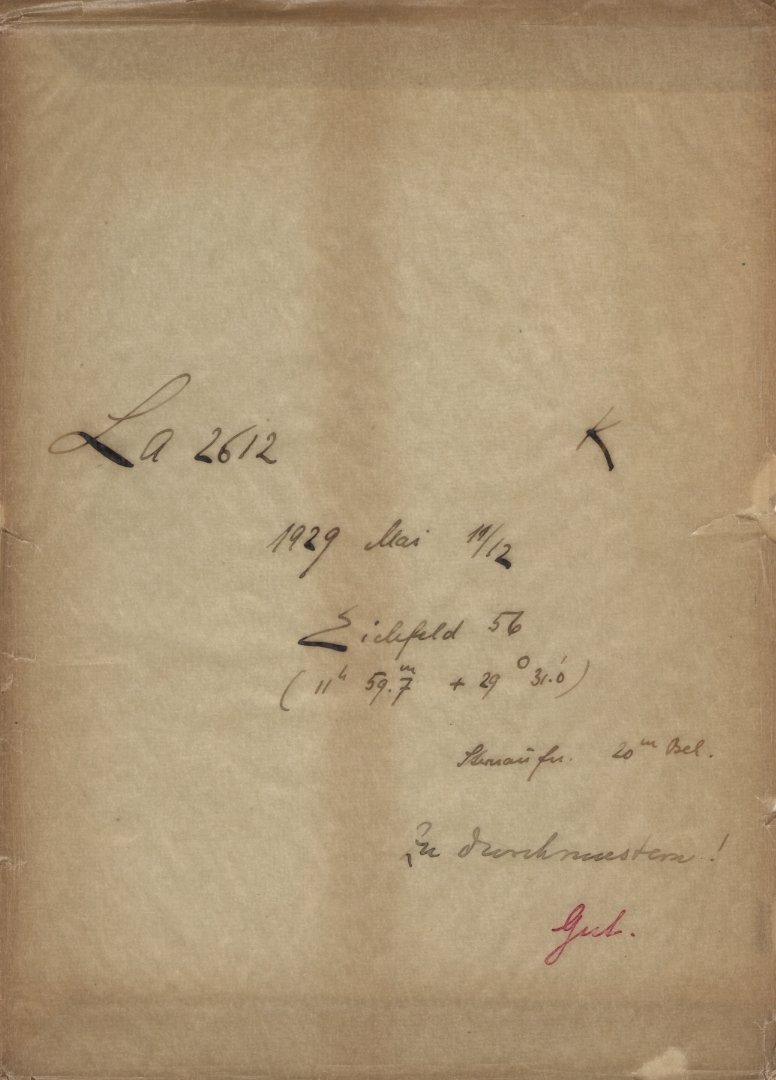 La 2612 K
1929 Mai 11/12
Eichfeld 56
( 11h 59.m7 + 29° 31.'0 )
Sternaufn. 20m Bel.
Zu durchmustern !
Gut.